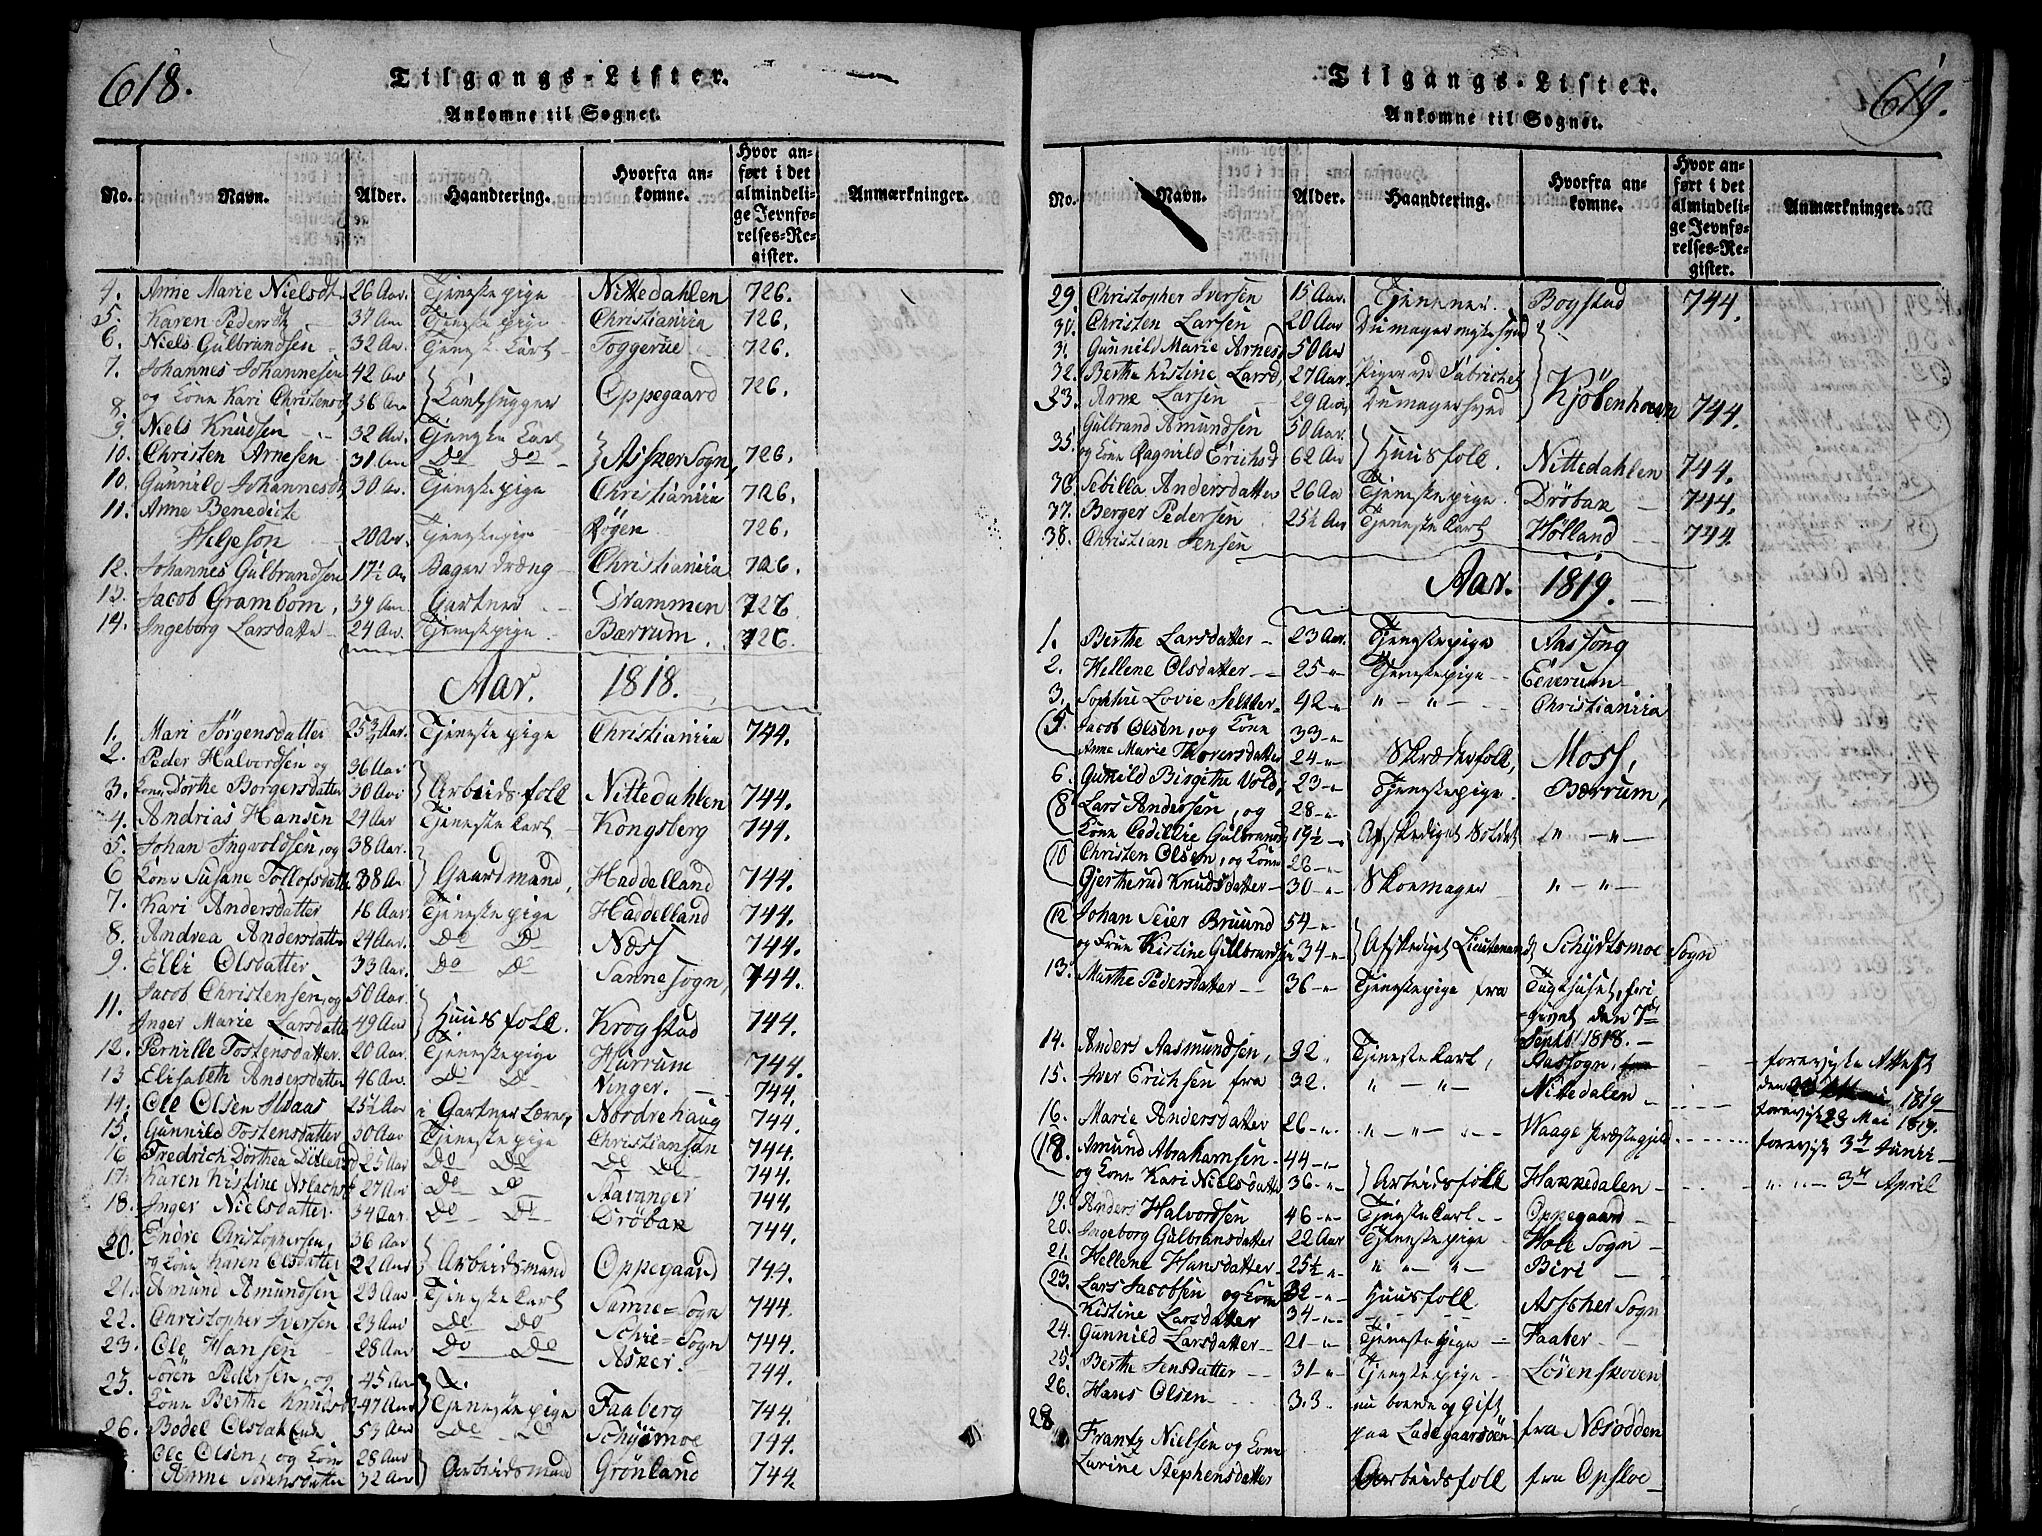 618.
Tilgangs-Lister.
Ankomne til Sognet.
No. Navn. Alder. Haandtering. Hvorfra ankomne. Hvor anført i det almindelige Jevnførelses-Register. Anmærkninger.
4. Anne Marie Nielsdt 26 Aar. Tjenestepige Nittedahlen 726.
5. Karen Pedersdt 37 Aar Tjenestepige Christiania 726.
6. Niels Gulbrandsen 32 Aar. Tjeneste Karl Toggerue 726.
7. Johannes Johannesen 42 Aar
8. og Kone Kari Christensdt 36 Aar Oppegaard 726.
9. Niels Knudsen 32 Aar. Tjeneste Karl
10. Christen Arnesen 31 Aar Do Do Asker Sogn, 726.
10. Gunnild Johannesdt 30 Aar. Tjenestepige Christiania 726.
11. Anne Benedicte
Helgeson 20 Aar. Tjenestepige Røgen 726.
12. Johannes Gulbrandsen 17½ Aar Bager dræng Christiania 726.
13. Jacob Grambom, 39 Aar. Gartner Drammen 726
14. Ingeborg Larsdatter 24 Aar. Tjenestepige Bærrum. 726.
Aar. 1818.
1. Mari Jörgensdatter 25¾ Aar. Tjenestepige Christiania 744.
2. Peder Halvordsen og 36 Aar
3. Kone Dorthe Borgersdatter 30 Aar Arbeidsfolk Nittedahlen 744.
4. Andrias Hansen 24 Aar Tjeneste Karl Kongsberg 744.
5. Johan Ingvoldsen, og 38 Aar.
6 Kone Susane Tollofsdatter 38 Aar Gaardmand, Haddelland 744.
7. Kari Andersdatter 16 Aar Tjenestepige Haddelland 744.
8. Andrea Andersdatter 24 Aar. Do Do Næss 744.
9. Elli Olsdatter 33 Aar. Do Do Sanne Sogn, 744.
Jacob Christensen, og 50 Aar.
11. Inger Marie Larsdatter 49 Aar Huusfolk. Krogstad 744.
12. Pernille Tostensdatter 20 Aar. Tjenestepige Hurrum 744.
13 Elisabeth Andersdatter 46 Aar. Do Do Vinger. 744.
14. Ole Olsen Hvaas 25½ Aar i Gartner Lære, Nordrehaug 744.
15. Gunnild Tostensdatter 30 Aar Tjenestepige Christiansan 744.
16 Fredrich Dorthea 25 Aar Do Do Do Do 744.
17. Karen Kistine Aslachsdt 27 Aar Do Do Stavanger 744.
18. Inger Nielsdatter 34 Aar. Do Do Dröbak 744.
Endre Christophersen, 36 Aar
20. og Kone Karen Olsdatter 22 Aar Arbeidsmand Oppegaard 744.
21. Amund Amundsen 23 Aar Tjeneste Karl Sogn 744.
22. Christopher Iversen 23 Aar Do Do Schie=Sogn 744.
23. Ole Hansen 28 Aar Do Do Asker. 744.
Sören Pedersen, og 45 Aar
25. Kone Berthe Knudsdt 47 Aar Tjenestepige Faaberg 744.
26. Bodel Olsdatter 53 Aar Do Do 744.
Ole Olsen, og Kone 28 Aar
Anne Sörensdatter 32 Aar Arbeidsmand Grönland 744.
619.
Tilgangs-Lister.
Ankomne til Sognet.
No. Navn. Alder. Haandtering. Hvorfra ankomne. Hvor anført i det almindelige Jevnførelses-Register. Anmærkninger.
29. Christopher Iversen 15 Aar. Tjenener Bogstad 744.
30. Christen Larsen 20 Aar
31. Gunnild Marie Arnes 50 Aar
32. Berthe Kistine Larsd, 27 Aar. Piger ved Fabrichet Kjöbenhavn 744.
33. Arne Larsen 29 Aar,
Gulbrand Amundsen 50 Aar.
35. og Kone Ragnild Erichsd 62 Aar Huusfolk. Nittedahlen 744.
36. Sebilla Andersdatter 26 Aa Tjenestepige. Dröbak 744.
37. Berger Pedersen 25½ Aar Tjeneste Karl Hölland 744.
38. Christian Jensen
Aar. 1819.
1. Berthe Larsdatter 23 Aar. Tjenestepige Aassong
2. Hellene Olsdatter 25 Tjenestepige Eeverum
3. Sophie Lovie 42 " " Christiania
5. Jacob Olsen, og Kone 33
Anne Marie Thoresdatter 24 Skræderfolk, Moss,
6. Gunild Birgithe Vold, 23 Tjenestepige. Bærrum,
8 Lars Andersen, og 28
Kone Gulbrands 19½ Afskediget Soldat " "
10 Christen Olsen, og Kone 26
Gjertherud Knudsdatter 30 Skoemager " "
12 Johan Seier Bruund 54
og Frue Kistine Gulbrands 34 Afskediget Lieutenant Schydtsmoe Sogn
13. Marthe Pedersdatter 36 Tjenestepige fra Tugthuset,
givet den 7de
Septbr 1818.
14. Anders Aasmundsen, 32. Tjeneste Karl, Aassogn, foreviste Attest
15. Iver Erichsen fra 32. " " Nittedalen den 1819
16. Marie Andersdatter 26 " " Waage Præstegjeld foreviist 23 Mai 1819.
18. Amund Abrahamsen 44 foreviist 3de Junii
og Kone Kari Nielsdatter 36 Arbeidsfolk Hakkedalen " " 3de April
19. Anders Halvordsen 46 Tjeneste Karl Oppegaard
20. Ingeborg Gulbransdatter 22 Aar Tjenestepige Hole Sogn
21. Hellene Hansdatter 25½ " " Biri
23. Lars Jacobsen og Kone 32 Huusfolk Asscher Sogn
Kistine Larsdatter 34
24. Gunnild Larsdatter 21 Tjenestepige Faaber
25. Berthe Jensdatter 31 Tjenestepige Lörenskoven
26. Hans Olsen 33 nu boende og Gift
paa Ladegaardsöen fra Næsodden
28 Frantz Nielsen og Kone
Karine Stephensdatter Arbeidsfolk fra Opsloe